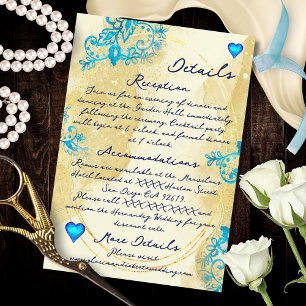 Details
Reception
Join us for an evening of dinner and
dancing at the Garden Hall immediately
following the ceremony. Cocktail party
will begin at 6 o'clock, and formal dinner
at 7 o'clock.
Accommodations
Rooms are available at the Marvelous
Hotel located at XXXX Horton Street,
San Diego CA 92619.
Please call XXXXXXXXXX and
mention the Hernandez Wedding for your
discount rate.
More Details
Please visit